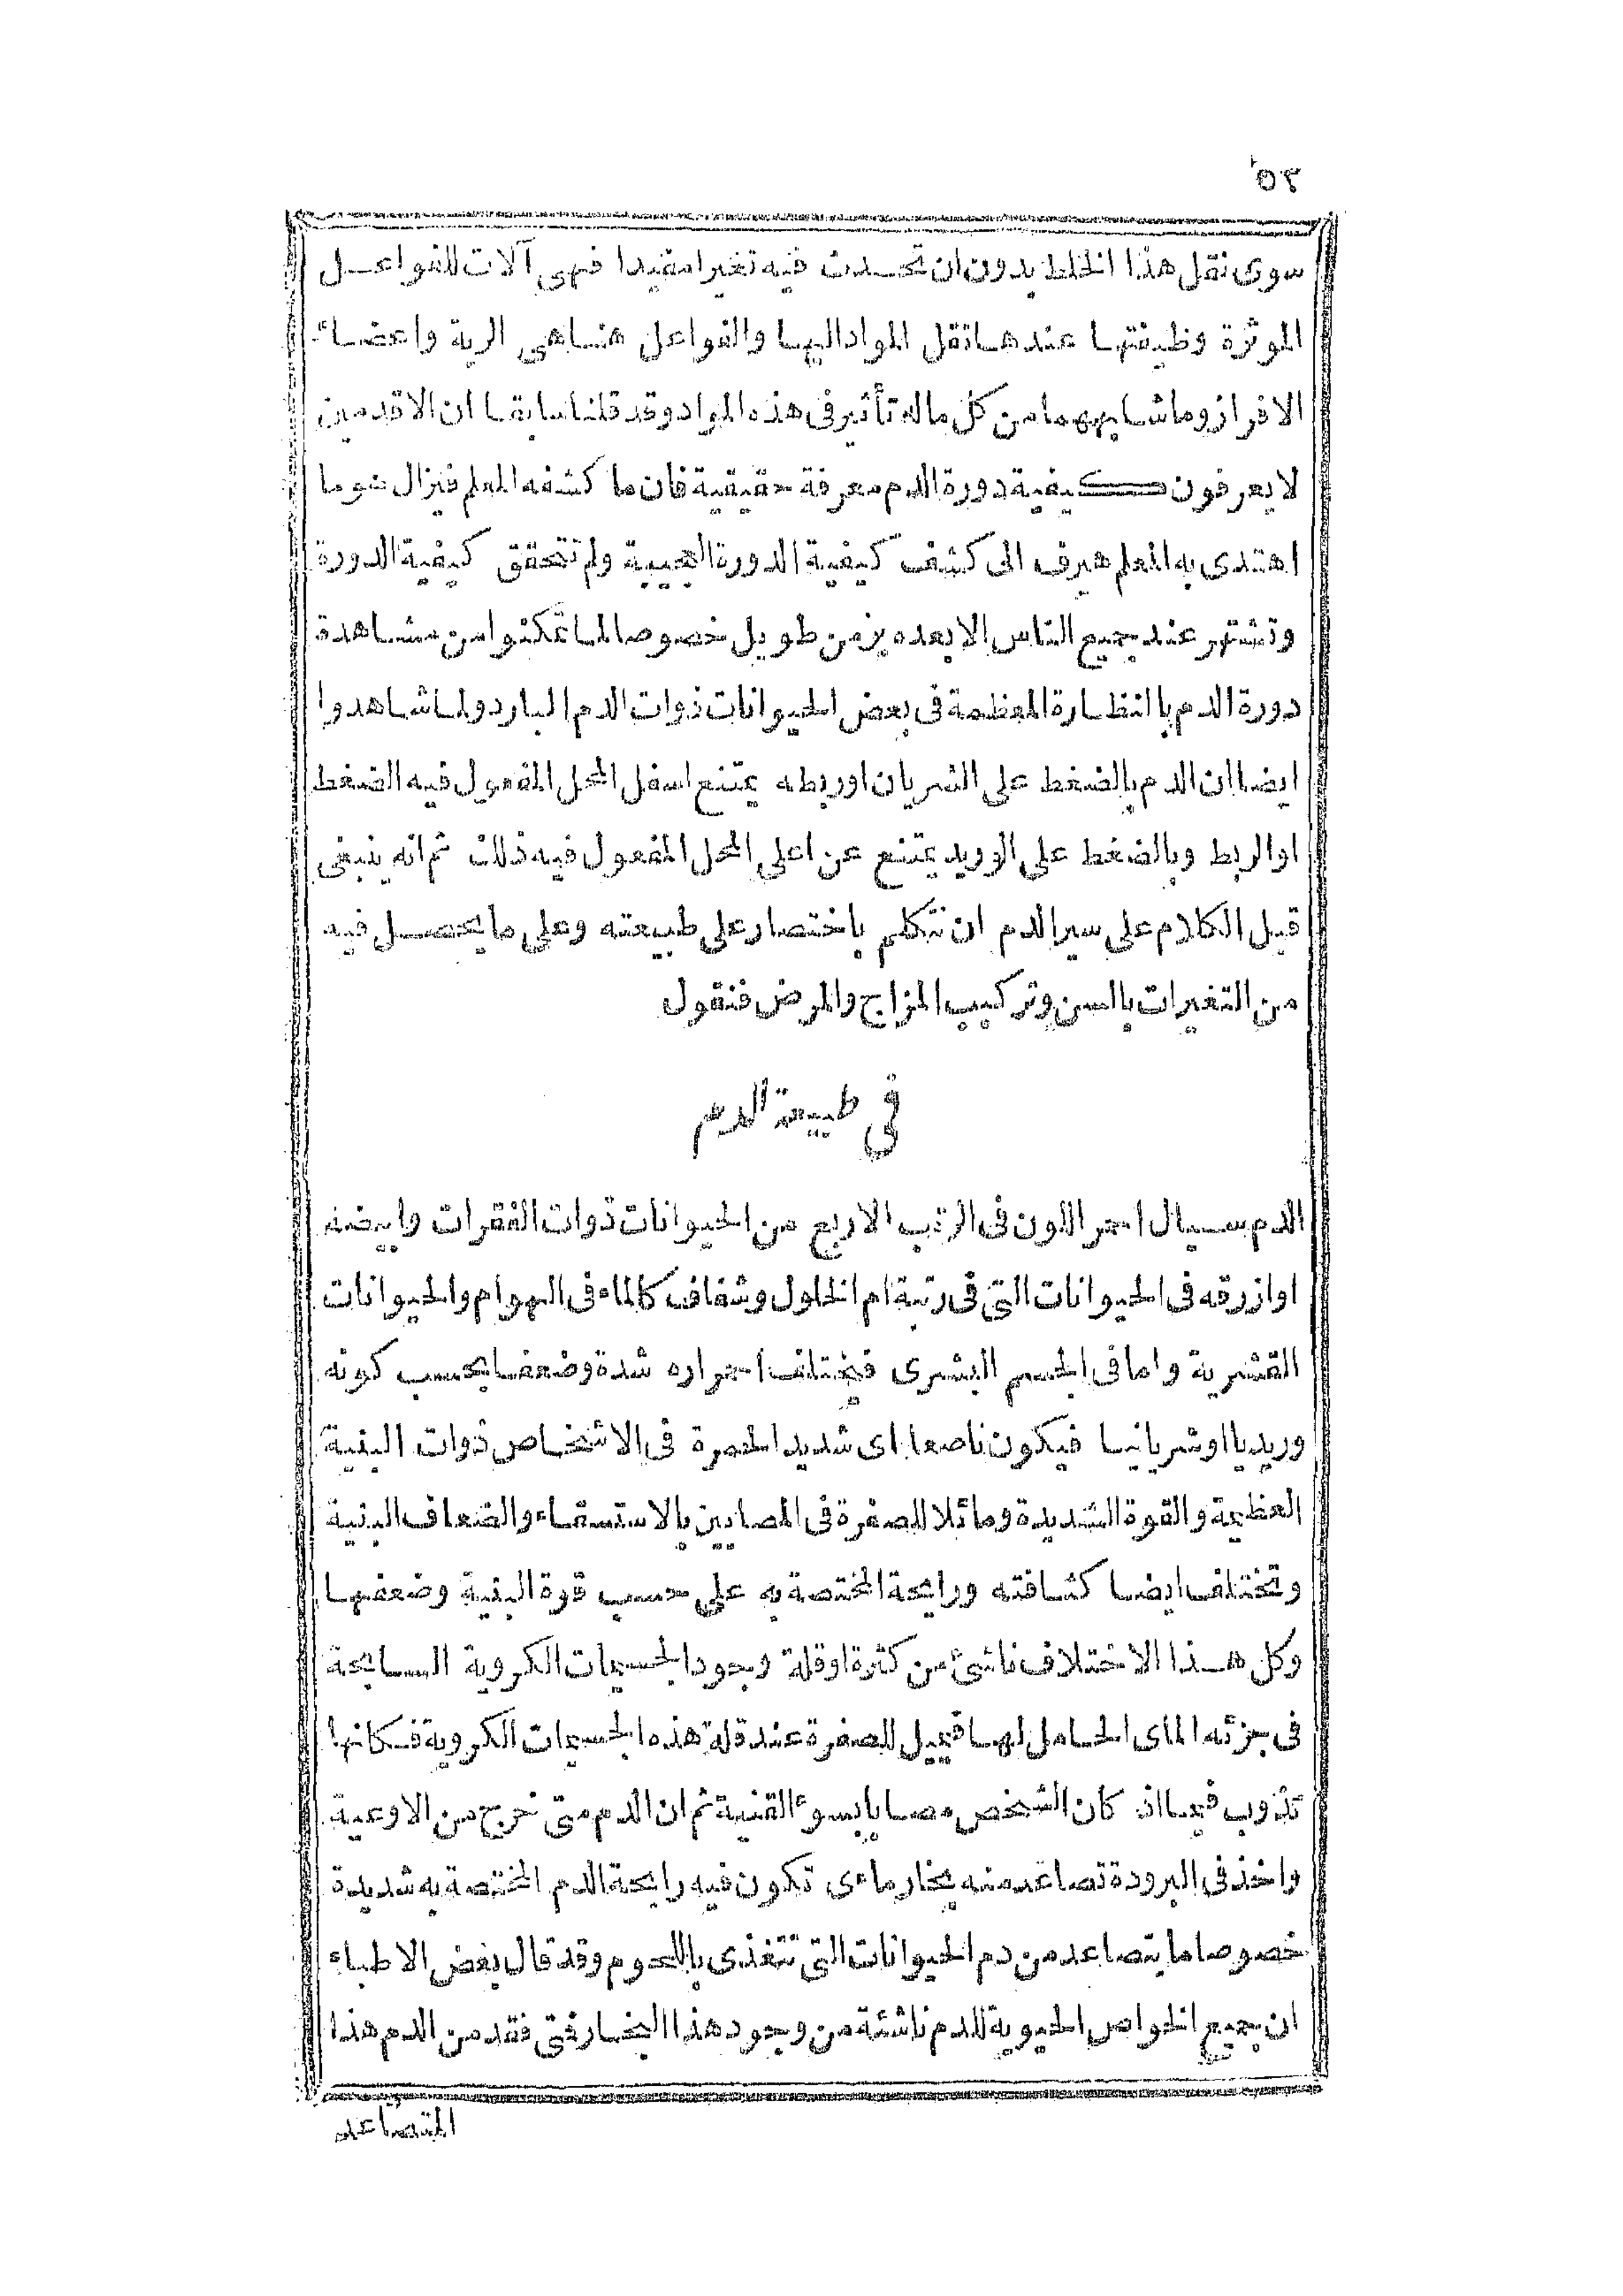 ٢٥٢
سوى نقل هذا الخلط بدون ان تحدث فيه تغيرا مفيدا فهى آلات للفواعل
الموثرة وظيفتها عندها نقل المواد اليها والفواعل هنا هى الرية واعضاء
الافراز وما شابههما من كل ماله تأثير فى هذه المواد وقد قلنا سابقا ان الاقدمين
لا يعرفون كيفية دورة الدم معرفة حقيقية فان ما كشفه المعلم فيزال هو ما
اهتدى به المعلم هيرف الى كشف كيفية الدورة العجيبة ولم تتحقق كيفية الدورة
وتشتهر عند جميع الناس الا بعده بزمن طويل خصوصا لما تمكنوا من مشاهدة
دورة الدم بالنظارة المعظمة فى بعض الحيوانات ذوات الدم البارد ولما شاهدوا
ايضا ان الدم بالضغط على الشريان او ربطه يمتنع اسفل المحل المفعول فيه الضغط
او الربط وبالضغط على الوريد يمتنع عن اعلى المحل المفعول فيه ذلك ثم انه ينبغى
قبل الكلام على سير الدم ان نتكلم باختصار على طبيعته وعلى ما يحصل فيه
من التغيرات بالسن وتركيب المزاج والمرض فنقول
فى طبيعة الدم
الدم سيال احمر اللون فى الرتب الاربع من الحيوانات ذوات الفقرات وابيضه
او ازرقه فى الحيوانات التى فى رتبة ام الخلول وشفاف كالماء فى الهوام والحيوانات
القشرية واما فى الجسم البشرى فيختلف احمراره شدة وضعفا بحسب كونه
وريديا او شريانيا فيكون ناصعا اى شديد الحمرة فى الاشخاص ذوات البنية
العظيمة والقوة الشديدة ومائلا للصفرة فى المصابين بالاستسقاء والضعاف البنية
وتختلف ايضا كثافته ورايحة المختصة به على حسب قوة البنية وضعفها
وكل هذا الاختلاف ناشئ من كثرة او قلة وجود الجسيمات الكروية السابحة
فى جزئه الماى الحامل لها فيميل للصفرة عند قلة هذه الجسيمات الكروية فكانها
تذوب فيما اذ كان الشخص مصابا بسوء القنية ثم ان الدم متى خرج من الاوعية
واخذ فى البرودة تصاعد منه بخار ماءى تكون فيه رايحة الدم المختصة به شديدة
خصوصا ما يتصاعد من دم الحيوانات التى تتغذى باللحوم وقد قال بعض الاطباء
ان جميع الخواص الحيوية للدم ناشئة من وجود هذا البخار فمتى فقد من الدم هذا
المتصاعد